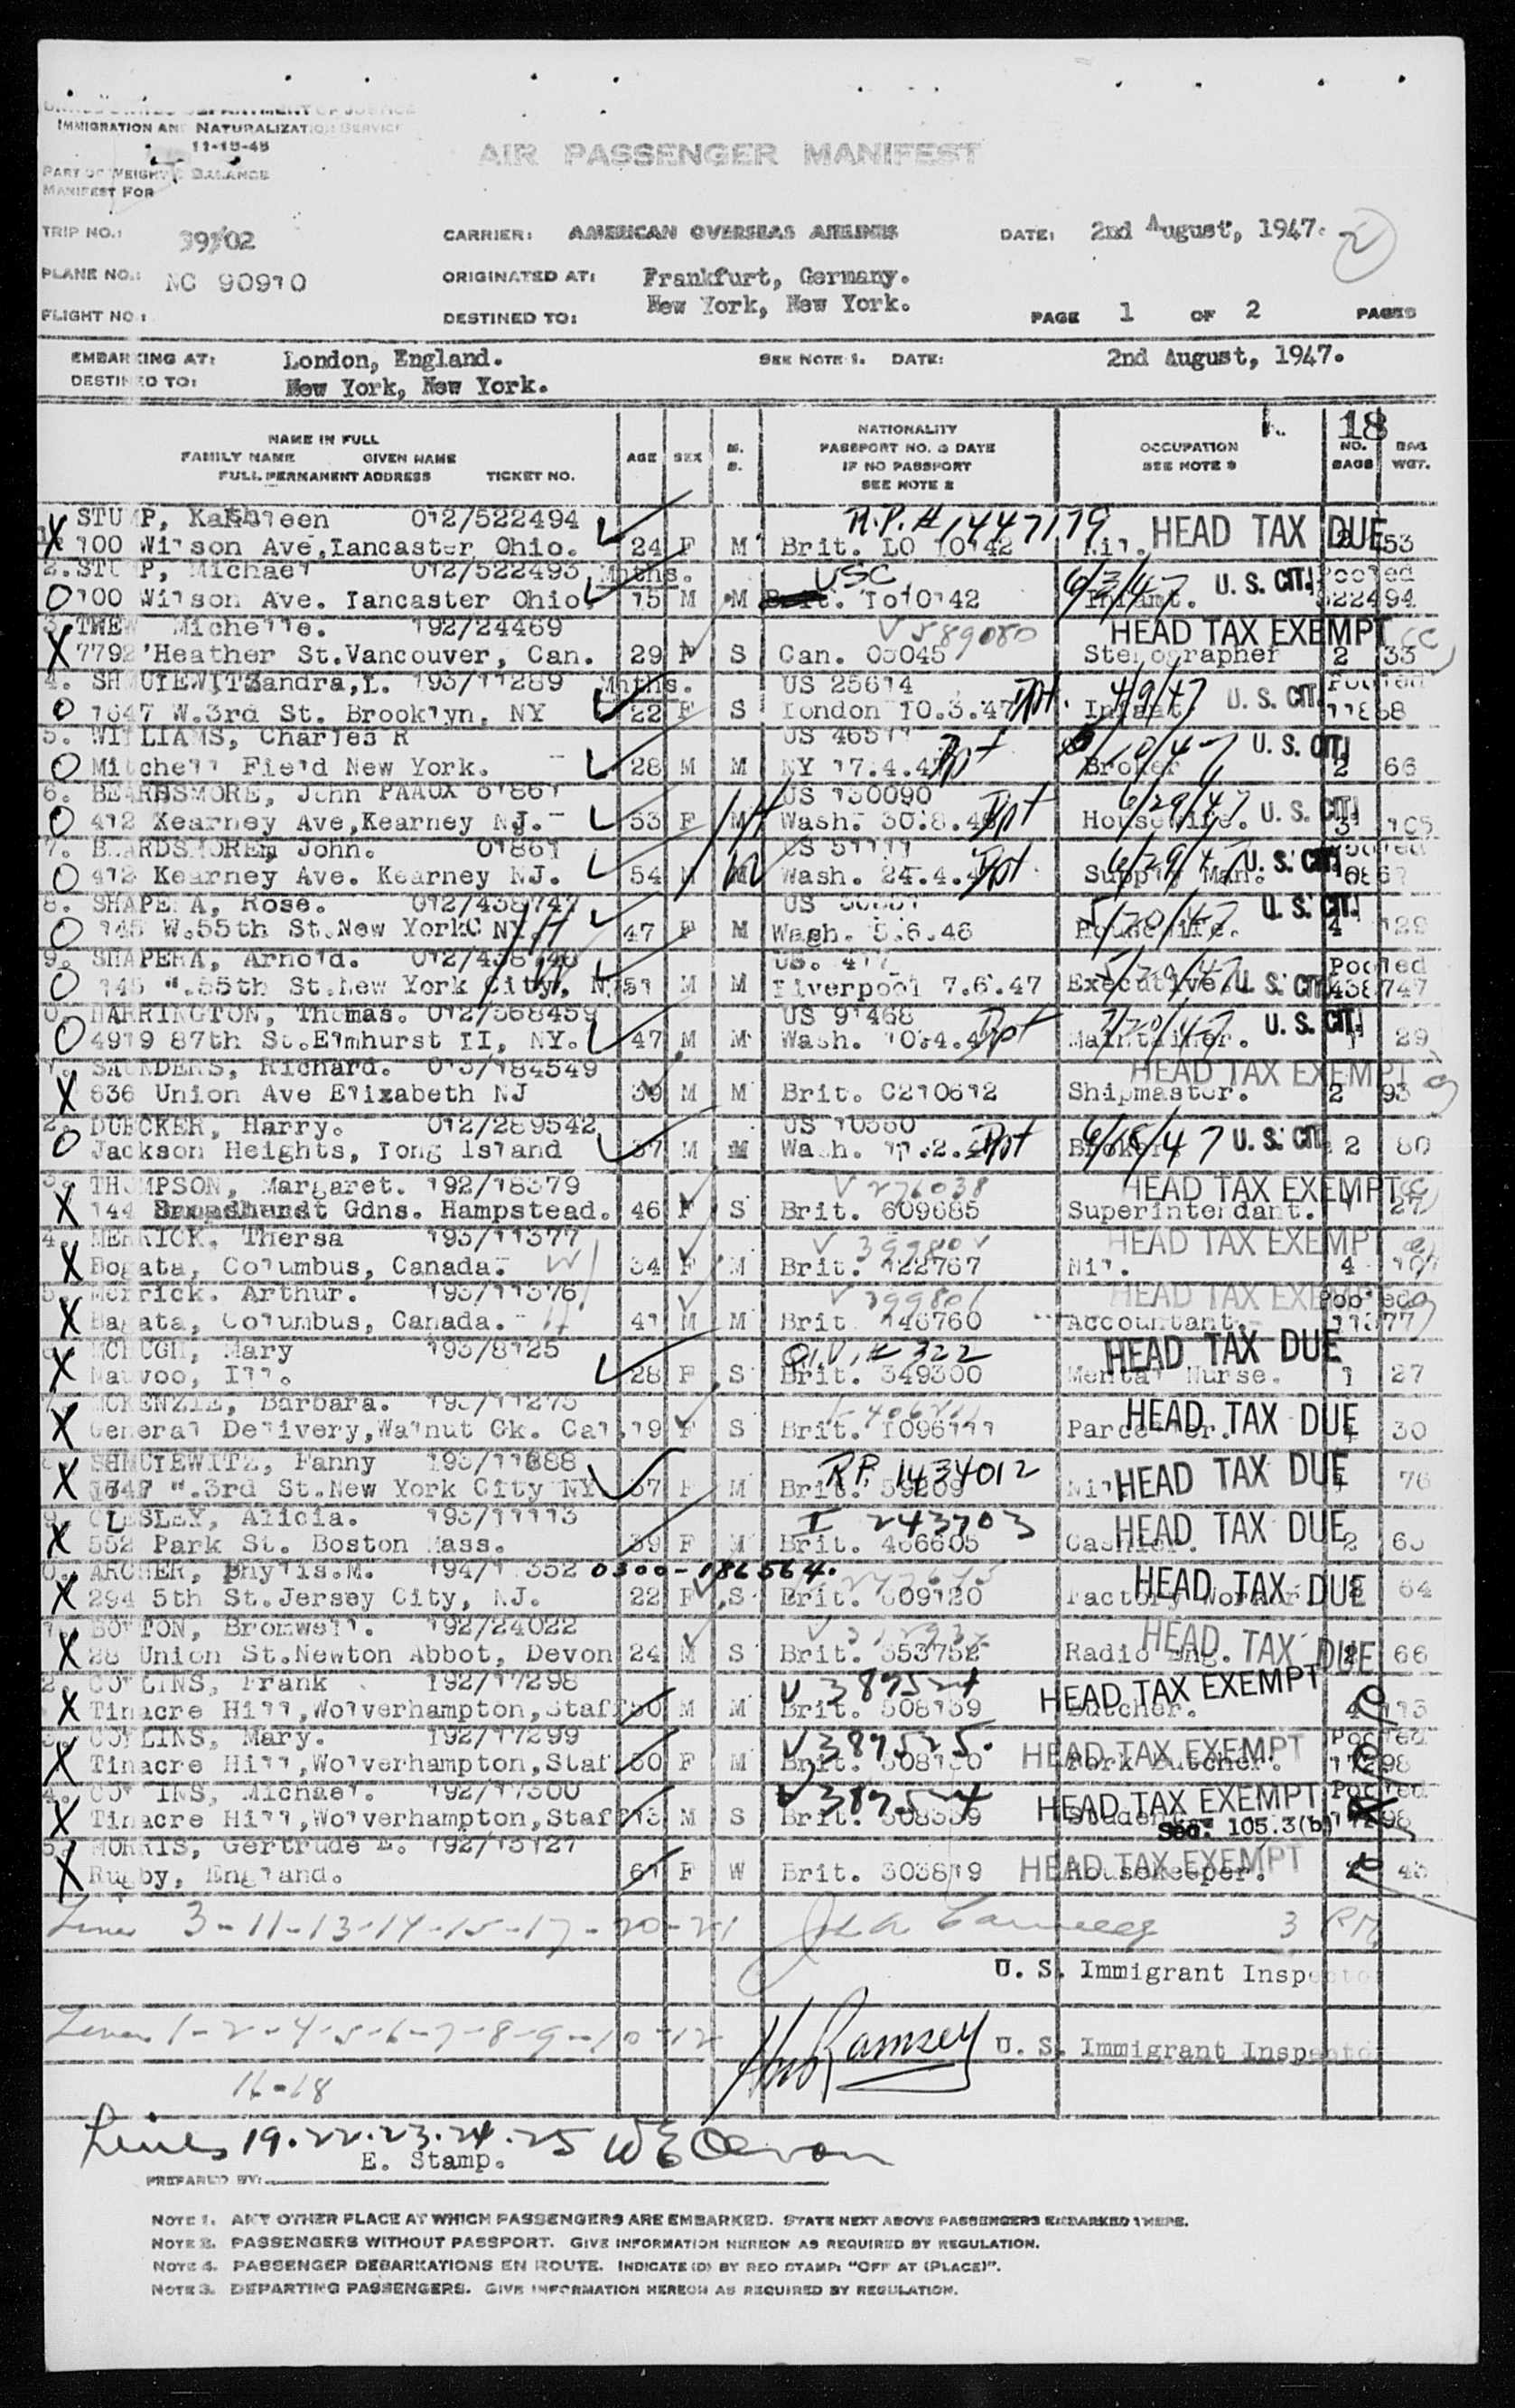 UNITED STATES DEPARTMENT OF JUSTICE
IMMIGRATION AND NATURALIZATION SERVICE
11-15-45
AIR PASSENGER MANIFEST
PART OF WEIGHT & BALANCE
MANIFEST FOR
TRIP NO.: CARRIER: AMERICAN OVERSEAS AIRLINES DATE: 2nd August, 1947. 2
PLANE NO.: NC 90910 ORIGINATED AT: Frankfurt, Germany.
FLIGHT NO.: DESTINED TO: New York, New York. PAGE 1 OF 2 PAGES
EMBARKING AT: London, England. SEE NOTE 1. DATE: 2nd August, 1947.
DESTINED TO: New York, New York.
18
NAME IN FULL
FAMILY NAME GIVEN NAME
FULL PERMANENT ADDRESS TICKET NO.
AGE SEX M. S.
NATIONALITY
PASSPORT NO. & DATE
IF NO PASSPORT
SEE NOTE 2
OCCUPATION
SEE NOTE 3
NO. BAGS
BAG WGT.
STUMP, Kathleen 012/522494 R.P.# 1447179 HEAD TAX DUE
X 100 Wilson Ave,Lancaster Ohio. 24 F M Brit. LO 10142 Nil. 2 53
2. STUMP, Michael 012/522493 Mnths. USC 6/3/47 U. S. CIT. Pooled
O 100 Wilson Ave. Lancaster Ohio. 15 M M Brit. Lo10142 Infant. 522494
3. THEW Michelle. 192/24469 V 589080 HEAD TAX EXEMPT
X 7792 Heather St.Vancouver, Can. 29 F S Can. 03045 Stenographer 2 33
4. SHMULEWITZ Sandra,L. 193/11289 Mnths. US 25614 4/9/47 U. S. CIT. Pooled
O 1647 W.3rd St. Brooklyn, NY 22 F S London 10.3.47 Ppt. Infant
5. WILLIAMS, Charles R US 46511 Ppt 5/10/47 U. S. CIT.
O Mitchell Field New York. 28 M M NY 17.4.47 Broker 2 66
6. BEARDSMORE, John PAAUX 01861 US 130090 Ppt 6/29/47 U. S. CIT.
O 412 Kearney Ave,Kearney NJ. 53 F M Wash. 30.8.46 Housewife. 3 105
7. BEARDSMORE, John. 01861 US 51111 Ppt 6/29/47 U. S. CIT. Pooled
O 412 Kearney Ave. Kearney NJ. 54 M M Wash. 24.4.47 Supply Man.
8. SHAPERA, Rose. 012/438747 US 5/20/47 U. S. CIT.
O 145 W.55th St.New YorkC NY. 47 F M Wash. 5.6.46 Housewife. 4 129
9. SHAPERA, Arnold. 012/438746 US. 417 5/20/47 Pooled
O 145 W.55th St.New York City, N 51 M M Liverpool 7.6.47 Executive. U. S. CIT. 438747
0. HARRINGTON, Thomas. 012/368459 US 91468 Ppt 7/20/47 U. S. CIT.
O 4919 87th St.Elmhurst LI, NY. 47 M M Wash. 10.4.4 Maintainer. 1 29
1. SAUNDERS, Richard. 013/184549 HEAD TAX EXEMPT
X 636 Union Ave Elizabeth NJ 39 M M Brit. C210612 Shipmaster. 2 93
2. DUECKER, Harry. 012/289542 US 10360 Ppt 6/15/47 U. S. CIT.
O Jackson Heights, Long Island 37 M M Wash. 11.2. Broker 2 80
3. THOMPSON, Margaret. 192/18379 V 276038 HEAD TAX EXEMPT
X 144 Gdns. Hampstead. 46 F S Brit. 609685 Superintendant. 1 27
4. MERRICK, Thersa 193/11377 V 399800 HEAD TAX EXEMPT
X Bogata, Columbus, Canada. 34 F M Brit. 122767 Nil. 4
5. Merrick. Arthur. 193/11376 V 399801 HEAD TAX EXEMPT Pooled
X Bagata, Columbus, Canada. 41 M M Brit 146760 Accountant. 11377
6. MCHUGH, Mary 193/8125 Q.I.V.# 322 HEAD TAX DUE
X Nauvoo, Ill. 28 F S Brit. 349300 Mental Nurse. 1 27
7. MCKENZIE, Barbara. 193/11275 HEAD TAX DUE
X General Delivery,Walnut Ck. Cal. 19 F S Brit. 1096111 30
8. SHMULEWITZ, Fanny 193/11288 R.P. 1434012 HEAD TAX DUE
X 1647 W.3rd St.New York City NY 37 F M Brit. 59209 Nil 76
9. OLESLEY, Alicia. 193/11113 I 243703 HEAD TAX DUE
X 552 Park St. Boston Mass. 39 F M Brit. 466605 Cashier. 2 63
0. ARCHER, Phyllis.M. 194/1 352 0300-186564. HEAD TAX DUE
X 294 5th St.Jersey City, NJ. 22 F S Brit. 609120 Factory Worker 2 64
1. BOLTON, Bromwell. 192/24022 HEAD TAX DUE
X 28 Union St.Newton Abbot, Devon 24 M S Brit. 353752 Radio Eng. 66
2. COLLINS, Frank 192/17298 V 389524 HEAD TAX EXEMPT
X Tinacre Hill,Wolverhampton,Staff 50 M M Brit. 508139 Butcher. 4 113
3. COLLINS, Mary. 192/17299 V 389525. HEAD TAX EXEMPT Pooled
X Tinacre Hill,Wolverhampton,Staf 50 F M Brit. Pork Butcher. 17298
4. COLLINS, Michael. 192/17300 V 389524 HEAD TAX EXEMPT Pooled
X Tinacre Hill,Wolverhampton,Staff 13 M S Brit. 508339 Student 17298
Sec. 105.3(b)
5. MORRIS, Gertrude E. 192/13127 HEAD TAX EXEMPT
X Rugby, England. 61 F W Brit. 303819 Housekeeper. 2 43
Lines 3-11-13-14-15-17-20-21 3 P.M.
U. S. Immigrant Inspector
Lines 1-2-4-5-6-7-8-9-10-12 Ramsey U. S. Immigrant Inspector
16-18
Lines 19.22.23.24.25
E. Stamp.
PREPARED BY:
NOTE 1. ANY OTHER PLACE AT WHICH PASSENGERS ARE EMBARKED. STATE NEXT ABOVE PASSENGERS EMBARKED THERE.
NOTE 2. PASSENGERS WITHOUT PASSPORT. GIVE INFORMATION HEREON AS REQUIRED BY REGULATION.
NOTE 4. PASSENGER DEBARKATIONS EN ROUTE. INDICATE (D) BY RED STAMP: "OFF AT (PLACE)".
NOTE 3. DEPARTING PASSENGERS. GIVE INFORMATION HEREON AS REQUIRED BY REGULATION.